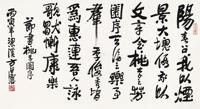 陽春召我以煙
景大塊假我以
文章會桃李之芳
園序天倫之樂事
羣季俊秀皆
為惠連吾人詠
歌獨慚康樂
節書桃花園序
丙寅年